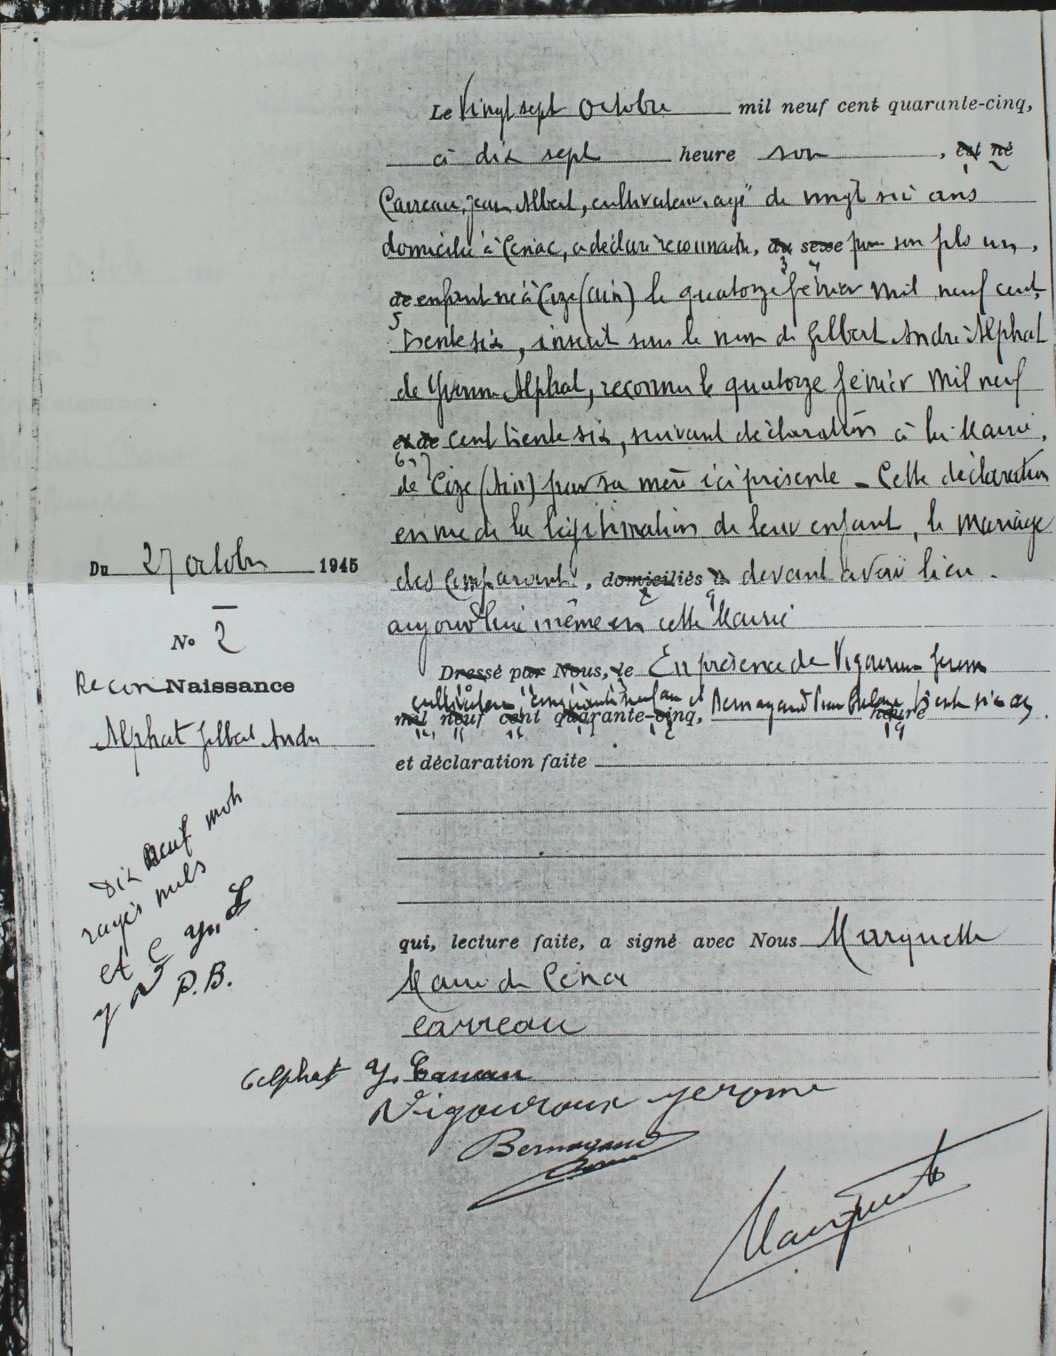 Le Vingt sept Octobre mil neuf cent quarante-cinq,
à dix sept heure soir, est né
Carreau, Jean Albert, cultivateur, agé de vingt six ans
domicilié à Cénac, a déclaré reconnaitre, du sexe pour son fils un,
de enfant né à Cize (Ain) le quatorze février mil neuf cent
trente six, inscrit sous le nom de Gilbert André Alphat
de Yvonne Alphat, reconnu le quatorze février mil neuf
et de cent trente six, suivant déclaration à la Mairie,
de Cize (Ain) par sa mère ici présente - Cette déclaration
en vue de la légitimation de leur enfant, le mariage
des comparants, domiciliés à devant avoir lieu.
aujourd'hui même en cette Mairie
Du 27 octobre 1945
No 2
Recon Naissance
Alphat Gilbert André
Dix neuf mots
rayés nuls
et C Y
Y A
P.B.
Dressé par Nous, le En présence de Vigouroux Jerome
cultivateur, cinquante neuf ans et trente six ans
mil neuf cent quarante-cinq, heure
et déclaration faite
qui, lecture faite, a signé avec Nous Marquette
Maire de Cénac
Carreau
Alphat Y. Carreau
Vigouroux Jerome